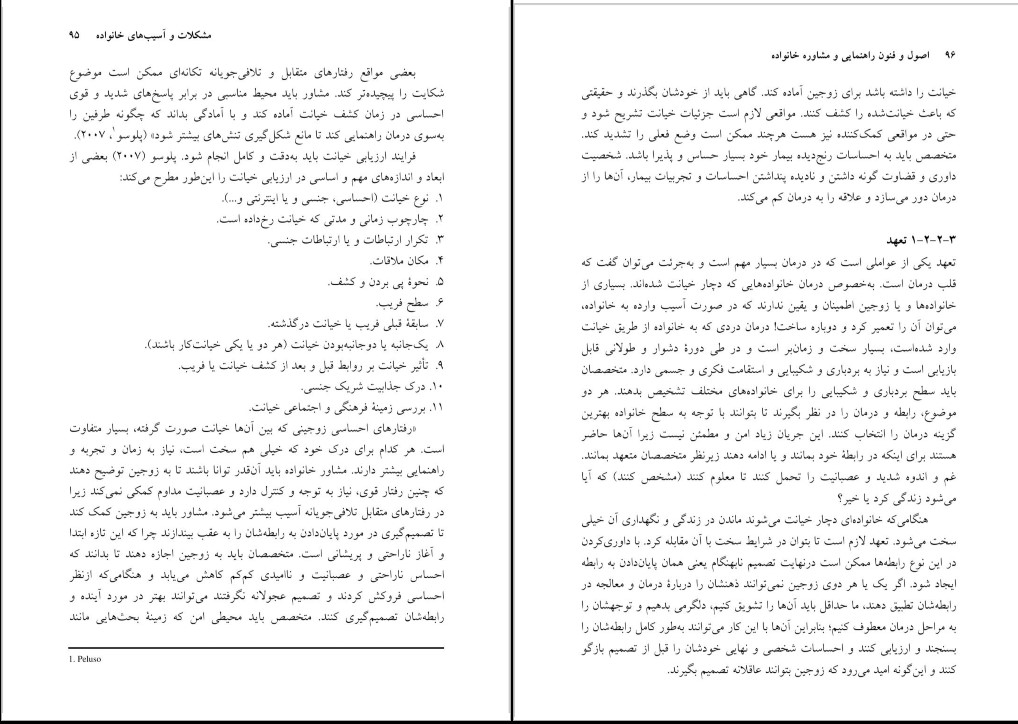 مشکلات و آسیب‌های خانواده ۹۵
بعضی مواقع رفتارهای متقابل و تلافی‌جویانه تکانه‌ای ممکن است موضوع
شکایت را پیچیده‌تر کند. مشاور باید محیط مناسبی در برابر پاسخ‌های شدید و قوی
احساسی در زمان کشف خیانت آماده کند و با آمادگی بداند که چگونه طرفین را
به‌سوی درمان راهنمایی کند تا مانع شکل‌گیری تنش‌های بیشتر شود» (پلوسو۱، ۲۰۰۷).
فرایند ارزیابی خیانت باید به‌دقت و کامل انجام شود. پلوسو (۲۰۰۷) بعضی از
ابعاد و اندازه‌های مهم و اساسی در ارزیابی خیانت را این‌طور مطرح می‌کند:
۱. نوع خیانت (احساسی، جنسی و یا اینترنتی و...).
۲. چارچوب زمانی و مدتی که خیانت رخ‌داده است.
۳. تکرار ارتباطات و یا ارتباطات جنسی.
۴. مکان ملاقات.
۵. نحوهٔ پی بردن و کشف.
۶. سطح فریب.
۷. سابقهٔ قبلی فریب یا خیانت درگذشته.
۸. یک‌جانبه یا دوجانبه‌بودن خیانت (هر دو یا یکی خیانت‌کار باشند).
۹. تأثیر خیانت بر روابط قبل و بعد از کشف خیانت یا فریب.
۱۰. درک جذابیت شریک جنسی.
۱۱. بررسی زمینهٔ فرهنگی و اجتماعی خیانت.
«رفتارهای احساسی زوجینی که بین آن‌ها خیانت صورت گرفته، بسیار متفاوت
است. هر کدام برای درک خود که خیلی هم سخت است، نیاز به زمان و تجربه و
راهنمایی بیشتر دارند. مشاور خانواده باید آن‌قدر توانا باشند تا به زوجین توضیح دهند
که چنین رفتار قوی، نیاز به توجه و کنترل دارد و عصبانیت مداوم کمکی نمی‌کند زیرا
در رفتارهای متقابل تلافی‌جویانه آسیب بیشتر می‌شود. مشاور باید به زوجین کمک کند
تا تصمیم‌گیری در مورد پایان‌دادن به رابطه‌شان را به عقب بیندازند چرا که این تازه ابتدا
و آغاز ناراحتی و پریشانی است. متخصصان باید به زوجین اجازه دهند تا بدانند که
احساس ناراحتی و عصبانیت و ناامیدی کم‌کم کاهش می‌یابد و هنگامی‌که ازنظر
احساسی فروکش کردند و تصمیم عجولانه نگرفتند می‌توانند بهتر در مورد آینده و
رابطه‌شان تصمیم‌گیری کنند. متخصص باید محیطی امن که زمینهٔ بحث‌هایی مانند
1. Peluso
۹۶ اصول و فنون راهنمایی و مشاوره خانواده
خیانت را داشته باشد برای زوجین آماده کند. گاهی باید از خودشان بگذرند و حقیقتی
که باعث خیانت‌شده را کشف کنند. مواقعی لازم است جزئیات خیانت تشریح شود و
حتی در مواقعی کمک‌کننده نیز هست هرچند ممکن است وضع فعلی را تشدید کند.
متخصص باید به احساسات رنج‌دیده بیمار خود بسیار حساس و پذیرا باشد. شخصیت
داوری و قضاوت گونه داشتن و نادیده پنداشتن احساسات و تجربیات بیمار، آن‌ها را از
درمان دور می‌سازد و علاقه را به درمان کم می‌کند.
۳-۲-۲-۱ تعهد
تعهد یکی از عواملی است که در درمان بسیار مهم است و به‌جرئت می‌توان گفت که
قلب درمان است. به‌خصوص درمان خانواده‌هایی که دچار خیانت شده‌اند. بسیاری از
خانواده‌ها و یا زوجین اطمینان و یقین ندارند که در صورت آسیب وارده به خانواده،
می‌توان آن را تعمیر کرد و دوباره ساخت! درمان دردی که به خانواده از طریق خیانت
وارد شده‌است، بسیار سخت و زمان‌بر است و در طی دورهٔ دشوار و طولانی قابل
بازیابی است و نیاز به بردباری و شکیبایی و استقامت فکری و جسمی دارد. متخصصان
باید سطح بردباری و شکیبایی را برای خانواده‌های مختلف تشخیص بدهند. هر دو
موضوع، رابطه و درمان را در نظر بگیرند تا بتوانند با توجه به سطح خانواده بهترین
گزینه درمان را انتخاب کنند. این جریان زیاد امن و مطمئن نیست زیرا آن‌ها حاضر
هستند برای اینکه در رابطهٔ خود بمانند و یا ادامه دهند زیرنظر متخصصان متعهد بمانند.
غم و اندوه شدید و عصبانیت را تحمل کنند تا معلوم کنند (مشخص کنند) که آیا
می‌شود زندگی کرد یا خیر؟
هنگامی‌که خانواده‌ای دچار خیانت می‌شوند ماندن در زندگی و نگهداری آن خیلی
سخت می‌شود. تعهد لازم است تا بتوان در شرایط سخت با آن مقابله کرد. با داوری‌کردن
در این نوع رابطه‌ها ممکن است درنهایت تصمیم نابهنگام یعنی همان پایان‌دادن به رابطه
ایجاد شود. اگر یک یا هر دوی زوجین نمی‌توانند ذهنشان را دربارهٔ درمان و معالجه در
رابطه‌شان تطبیق دهند، ما حداقل باید آن‌ها را تشویق کنیم، دلگرمی بدهیم و توجهشان را
به مراحل درمان معطوف کنیم؛ بنابراین آن‌ها با این کار می‌توانند به‌طور کامل رابطه‌شان را
بسنجند و ارزیابی کنند و احساسات شخصی و نهایی خودشان را قبل از تصمیم بازگو
کنند و این‌گونه امید می‌رود که زوجین بتوانند عاقلانه تصمیم بگیرند.